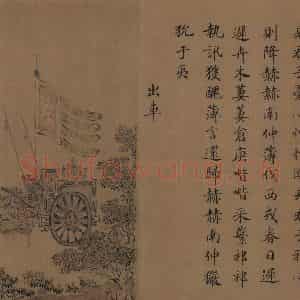 則降赫赫南仲薄伐西戎春日遲
遲卉木萋萋倉庚喈喈采蘩祁祁
執訊獲醜薄言還歸赫赫南仲玁
狁于夷
出車